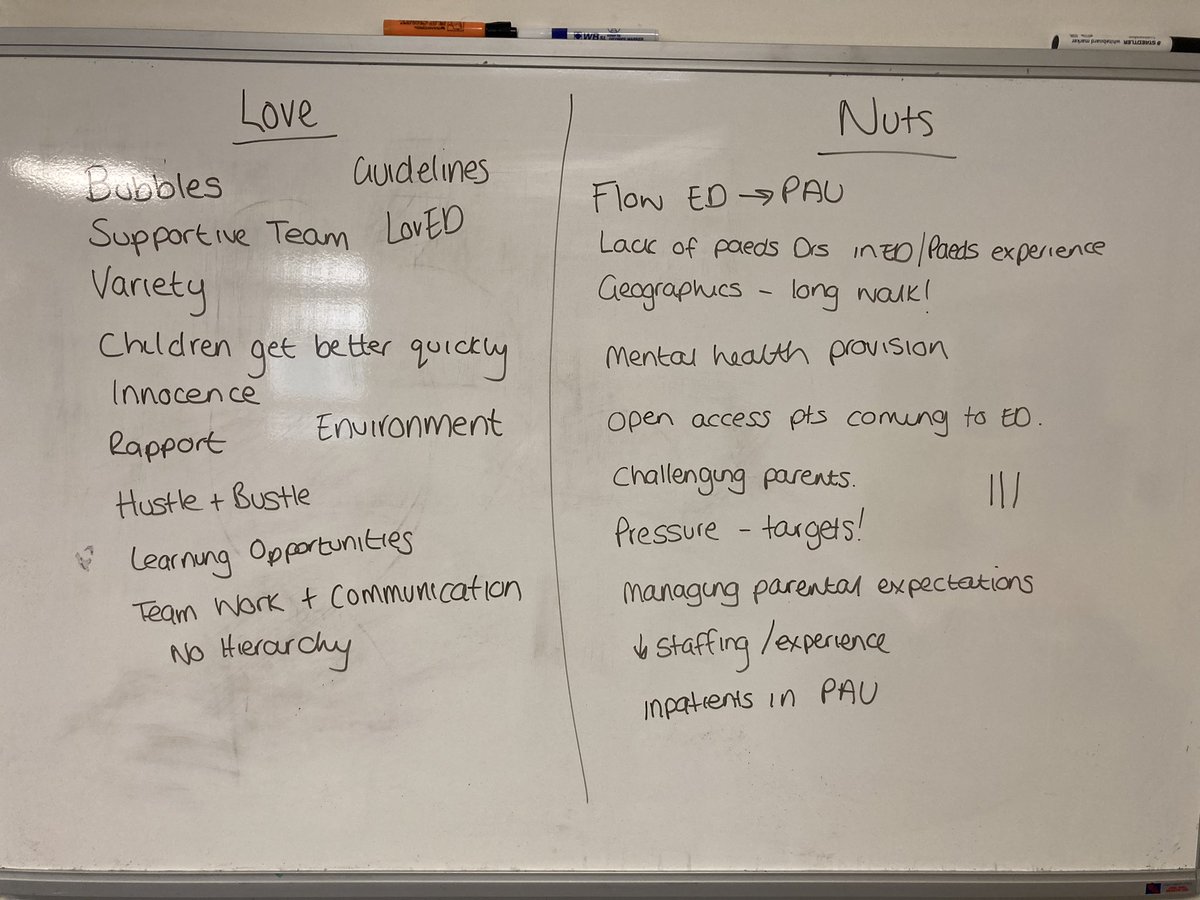 STAEDTLER
whiteboard marker
Love
Bubbles
Guidelines
Supportive Team
LovED
Variety
Children get better quickly
Innocence
Environment
Rapport
Hustle + Bustle
Learning Opportunities
Team Work + Communication
No Hierarchy
Nuts
Flow ED → PAU
Lack of paeds Drs in ED/Paeds experience
Geographics - long walk!
Mental health provision
Open access pts coming to ED.
Challenging parents.
|||
Pressure - targets!
Managing parental expectations
↓ Staffing/experience
inpatients in PAU